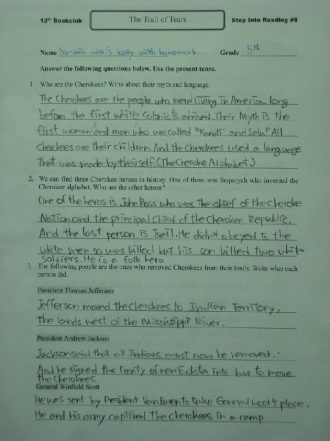 12th Bookclub The Trail of Tears Step Into Reading #8
Name is busy with homework Grade 5th
Answer the following questions below. Use the present tense.
1. Who are the Cherokees? Write about their myth and language.
The Cherokees are the people who were living in America long
before the first white colonists arrived. Their Myth is the
first woman and man who are called "Kanati and Selu" All
cherokees are their children. And the Cherokees used a language
that was made by theirself. (The Cherokee Alphabet)
2. We can find three Cherokee heroes in history. One of them was Sequoyah who invented the
Cherokee alphabet. Who are the other heroes?
One of the heros is John Ross who was the chief of the cherokee
Nation and the principal chief of the Cherokee Republic.
And the last person is Tsali. He didn't obeyed to the
white men so was killed but his son killed two white
soldiers. He is a folk hero
3. The following people are the ones who removed Cherokees from their lands. Write what each
person did.
President Thomas Jefferson
Jefferson moved the cherokees to Indian Territory,
The lands west of the Mississippi River.
President Andrew Jackson
Jackson said that all Indians must now be removed.
And he signed the treaty of New Echota to move
the cherokees
General Winfield Scott
He was sent by President Van Buren to take General Wool's place.
He and his army captured the cherokees in a camp